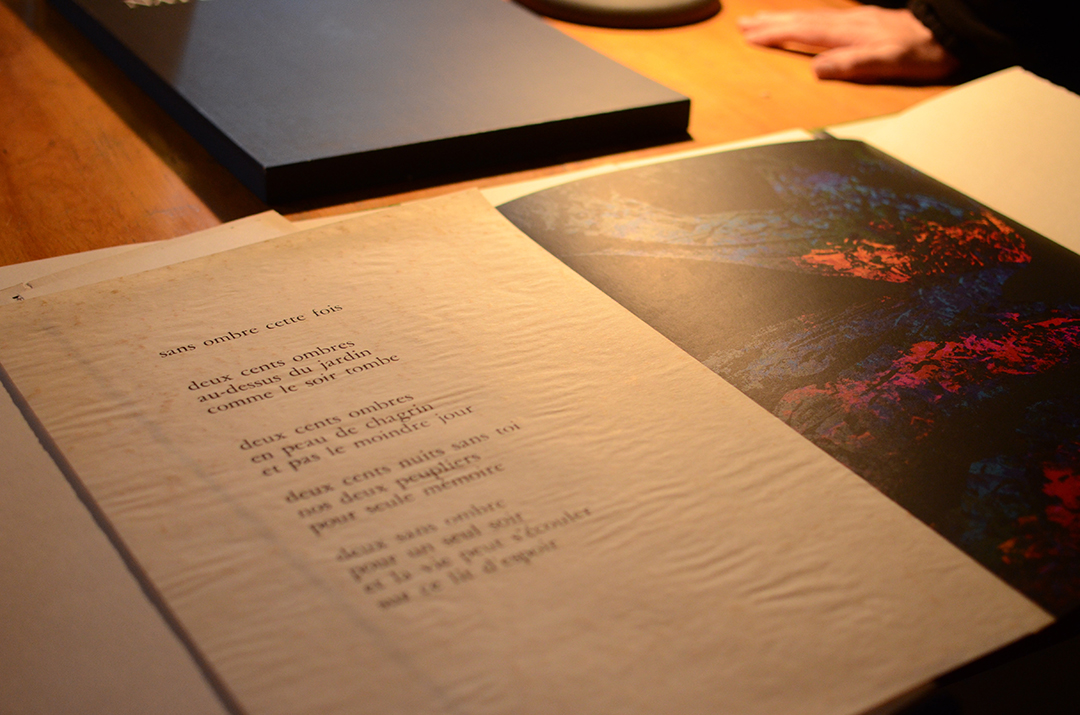 NAT
sans ombre cette fois
deux cents ombres
au-dessus du jardin
comme le soir tombe
deux cents ombres
en peau de chagrin
et pas le moindre jour
deux cents nuits sans toi
nos deux peupliers
pour seule mémoire
deux sans ombre
pour un seul soir
et la vie peut s'écouler
sur ce lit d'espoir